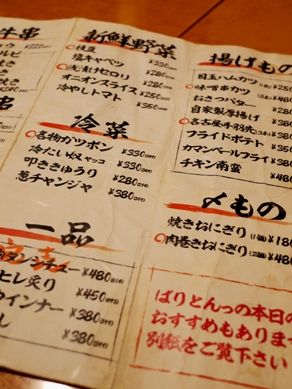 牛串
¥220
新鮮野菜
枝豆 ¥330
塩キャベツ ¥280
浅漬けセロリ ¥280
オニオンスライス ¥250
冷やしトマト ¥350
冷菜
名物ガツポン ¥330
冷たい奴 ¥330
叩ききゅうり ¥280
葱チャンジャ ¥380
一品
¥480
ヒレ炙り ¥450
インナー ¥380
し ¥380
揚げもの
目玉ハムカツ
味噌串カツ ¥250
おさつバター ¥280
自家製厚揚げ ¥
名古屋手羽先
フライドポテト ¥350
カマンベールフライ ¥380
チキン南蛮 ¥480
〆もの
焼きおにぎり (1個) ¥180
肉巻きおにぎり (2個) ¥480
ばりとんっの本日の
おすすめもありま
別紙をご覧下さい